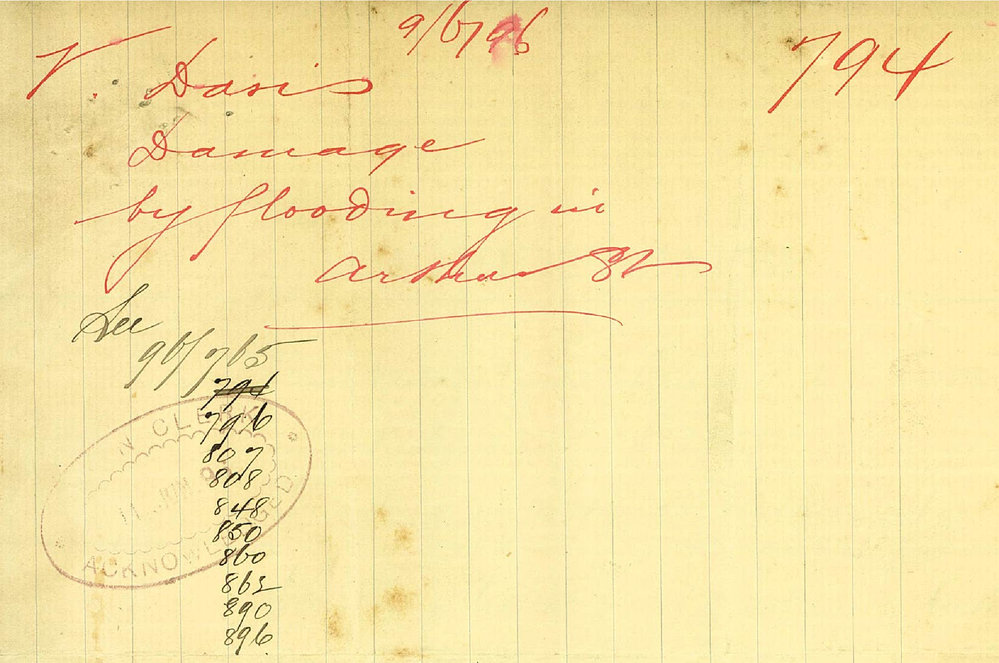 9/6/96
794
V. Davis
Damage
by flooding in
Arthur St
See
96/765
794
796
807
808
848
850
860
862
890
896
N CLERK
11 JUN 96
ACKNOWLEDGED